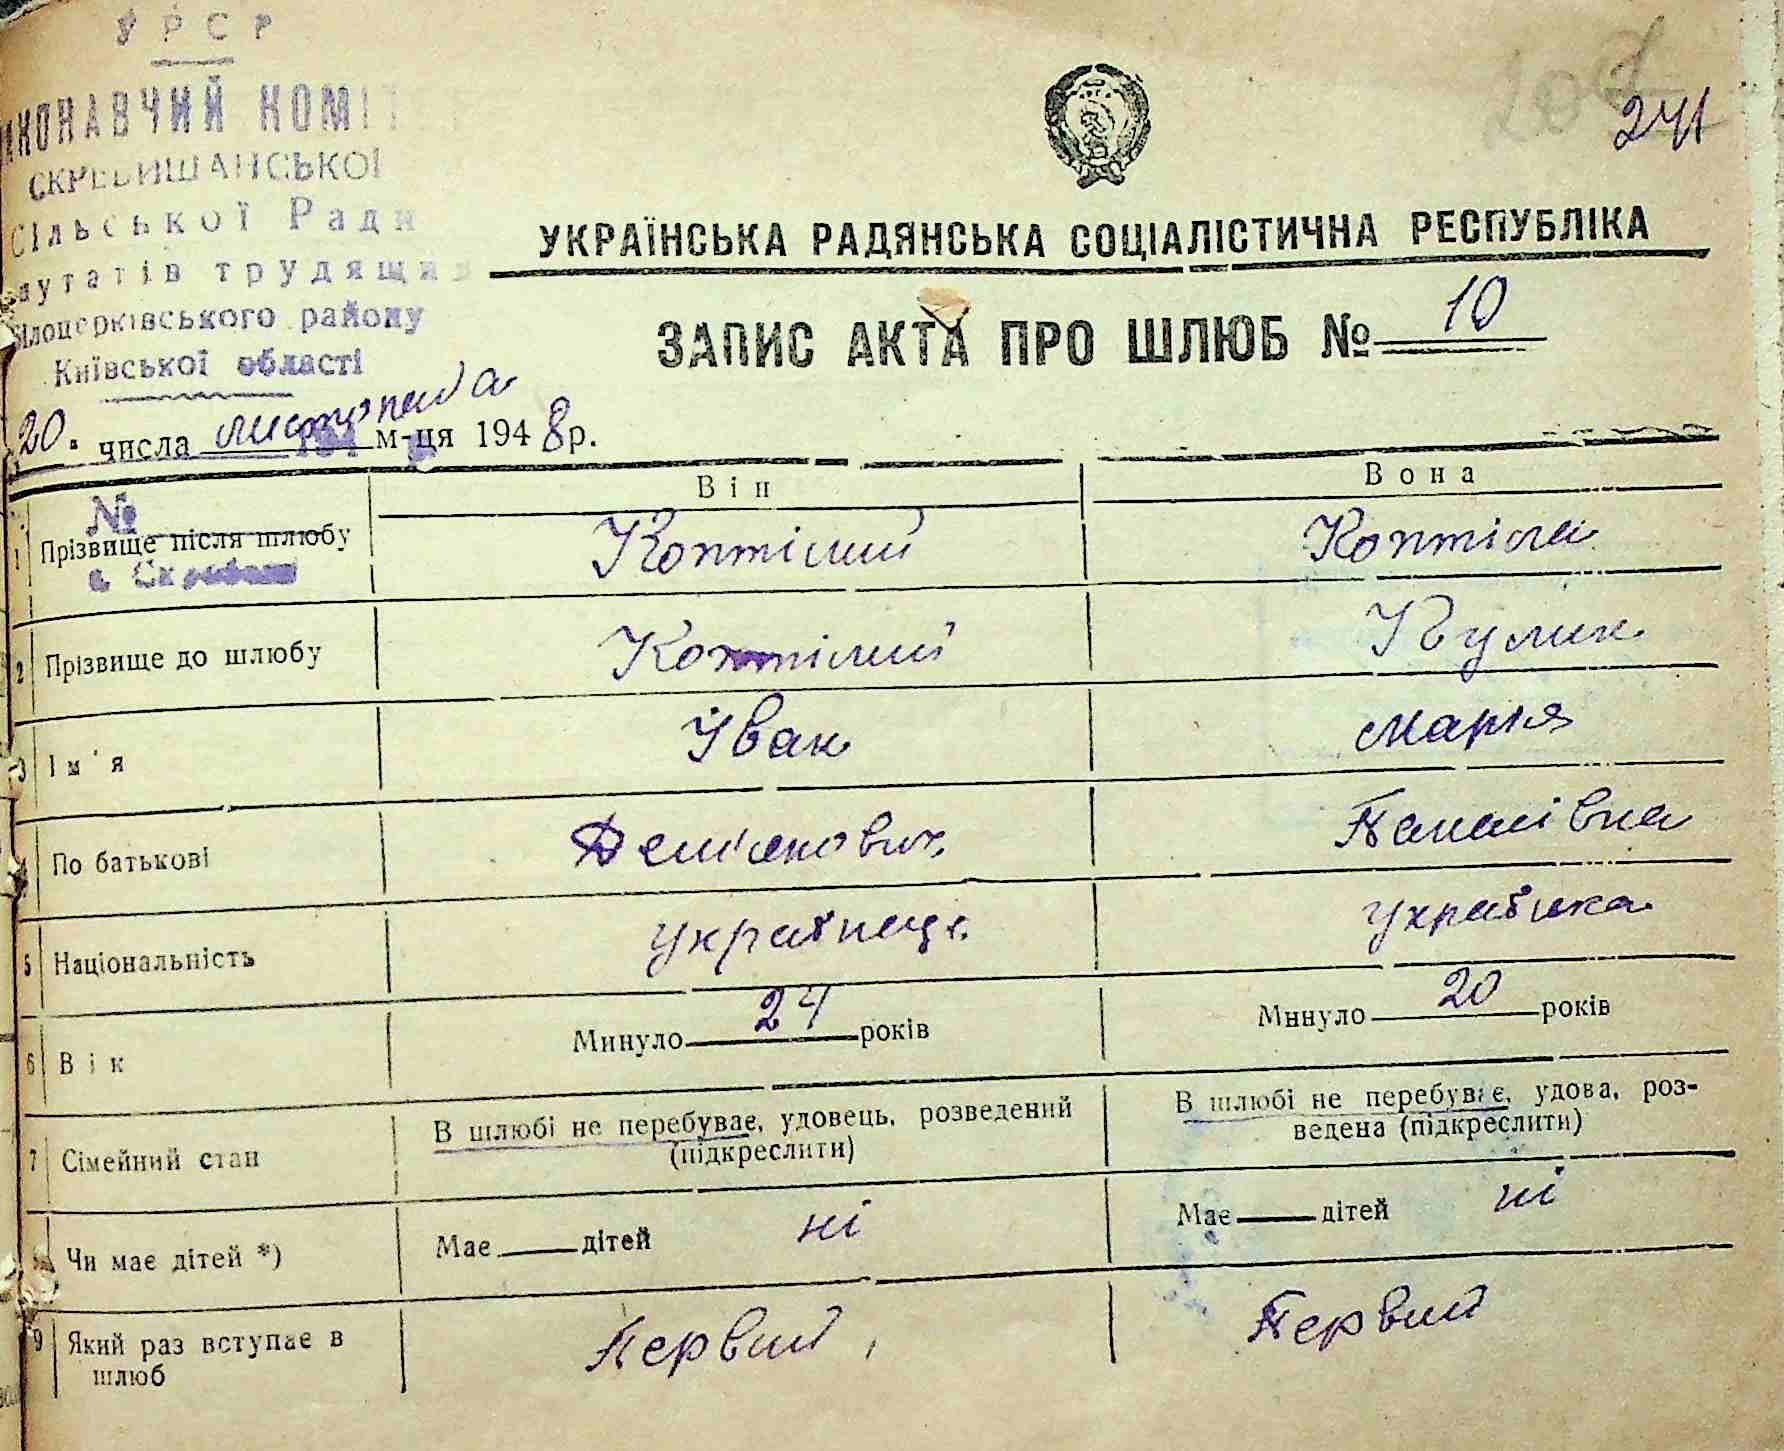 УРСР
ИКОНАВЧИЙ КОМІТ
СКРЕБИШАНСЬКОЇ
Сільської Ради
путатів трудящих
Білоцерківського району
Київської області
20 числа листопада м-ця 1948 р.
241
УКРАЇНСЬКА РАДЯНСЬКА СОЦІАЛІСТИЧНА РЕСПУБЛІКА
ЗАПИС АКТА ПРО ШЛЮБ № 10
Він Вона
№
1 Прізвище після шлюбу Коптілий Коптіла
2 Прізвище до шлюбу Коптілий Кулик
3 Ім'я Іван Марія
4 По батькові Дем'янович Панасівна
5 Національність українець українка
6 Вік Минуло 24 років Минуло 20 років
7 Сімейний стан В шлюбі не перебуває, удовець, розведений (підкреслити) В шлюбі не перебуває, удова, роз-
ведена (підкреслити)
Чи має дітей *) Має дітей ні Має дітей ні
9 Який раз вступає в шлюб Первий Первий